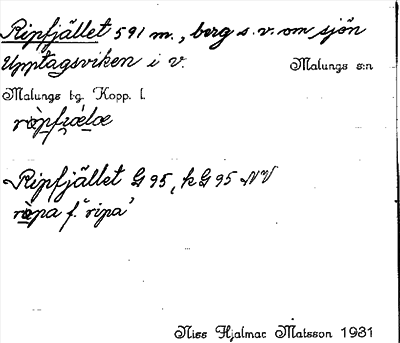 Ripfjället 591 m., berg s.v. om sjön
Upptagsviken i v. Malungs s:n
Malungs tg. Kopp. l.
Ripfjället G 95, k G 95 NV
f. 'ripa'
Niss Hjalmar Matsson 1931